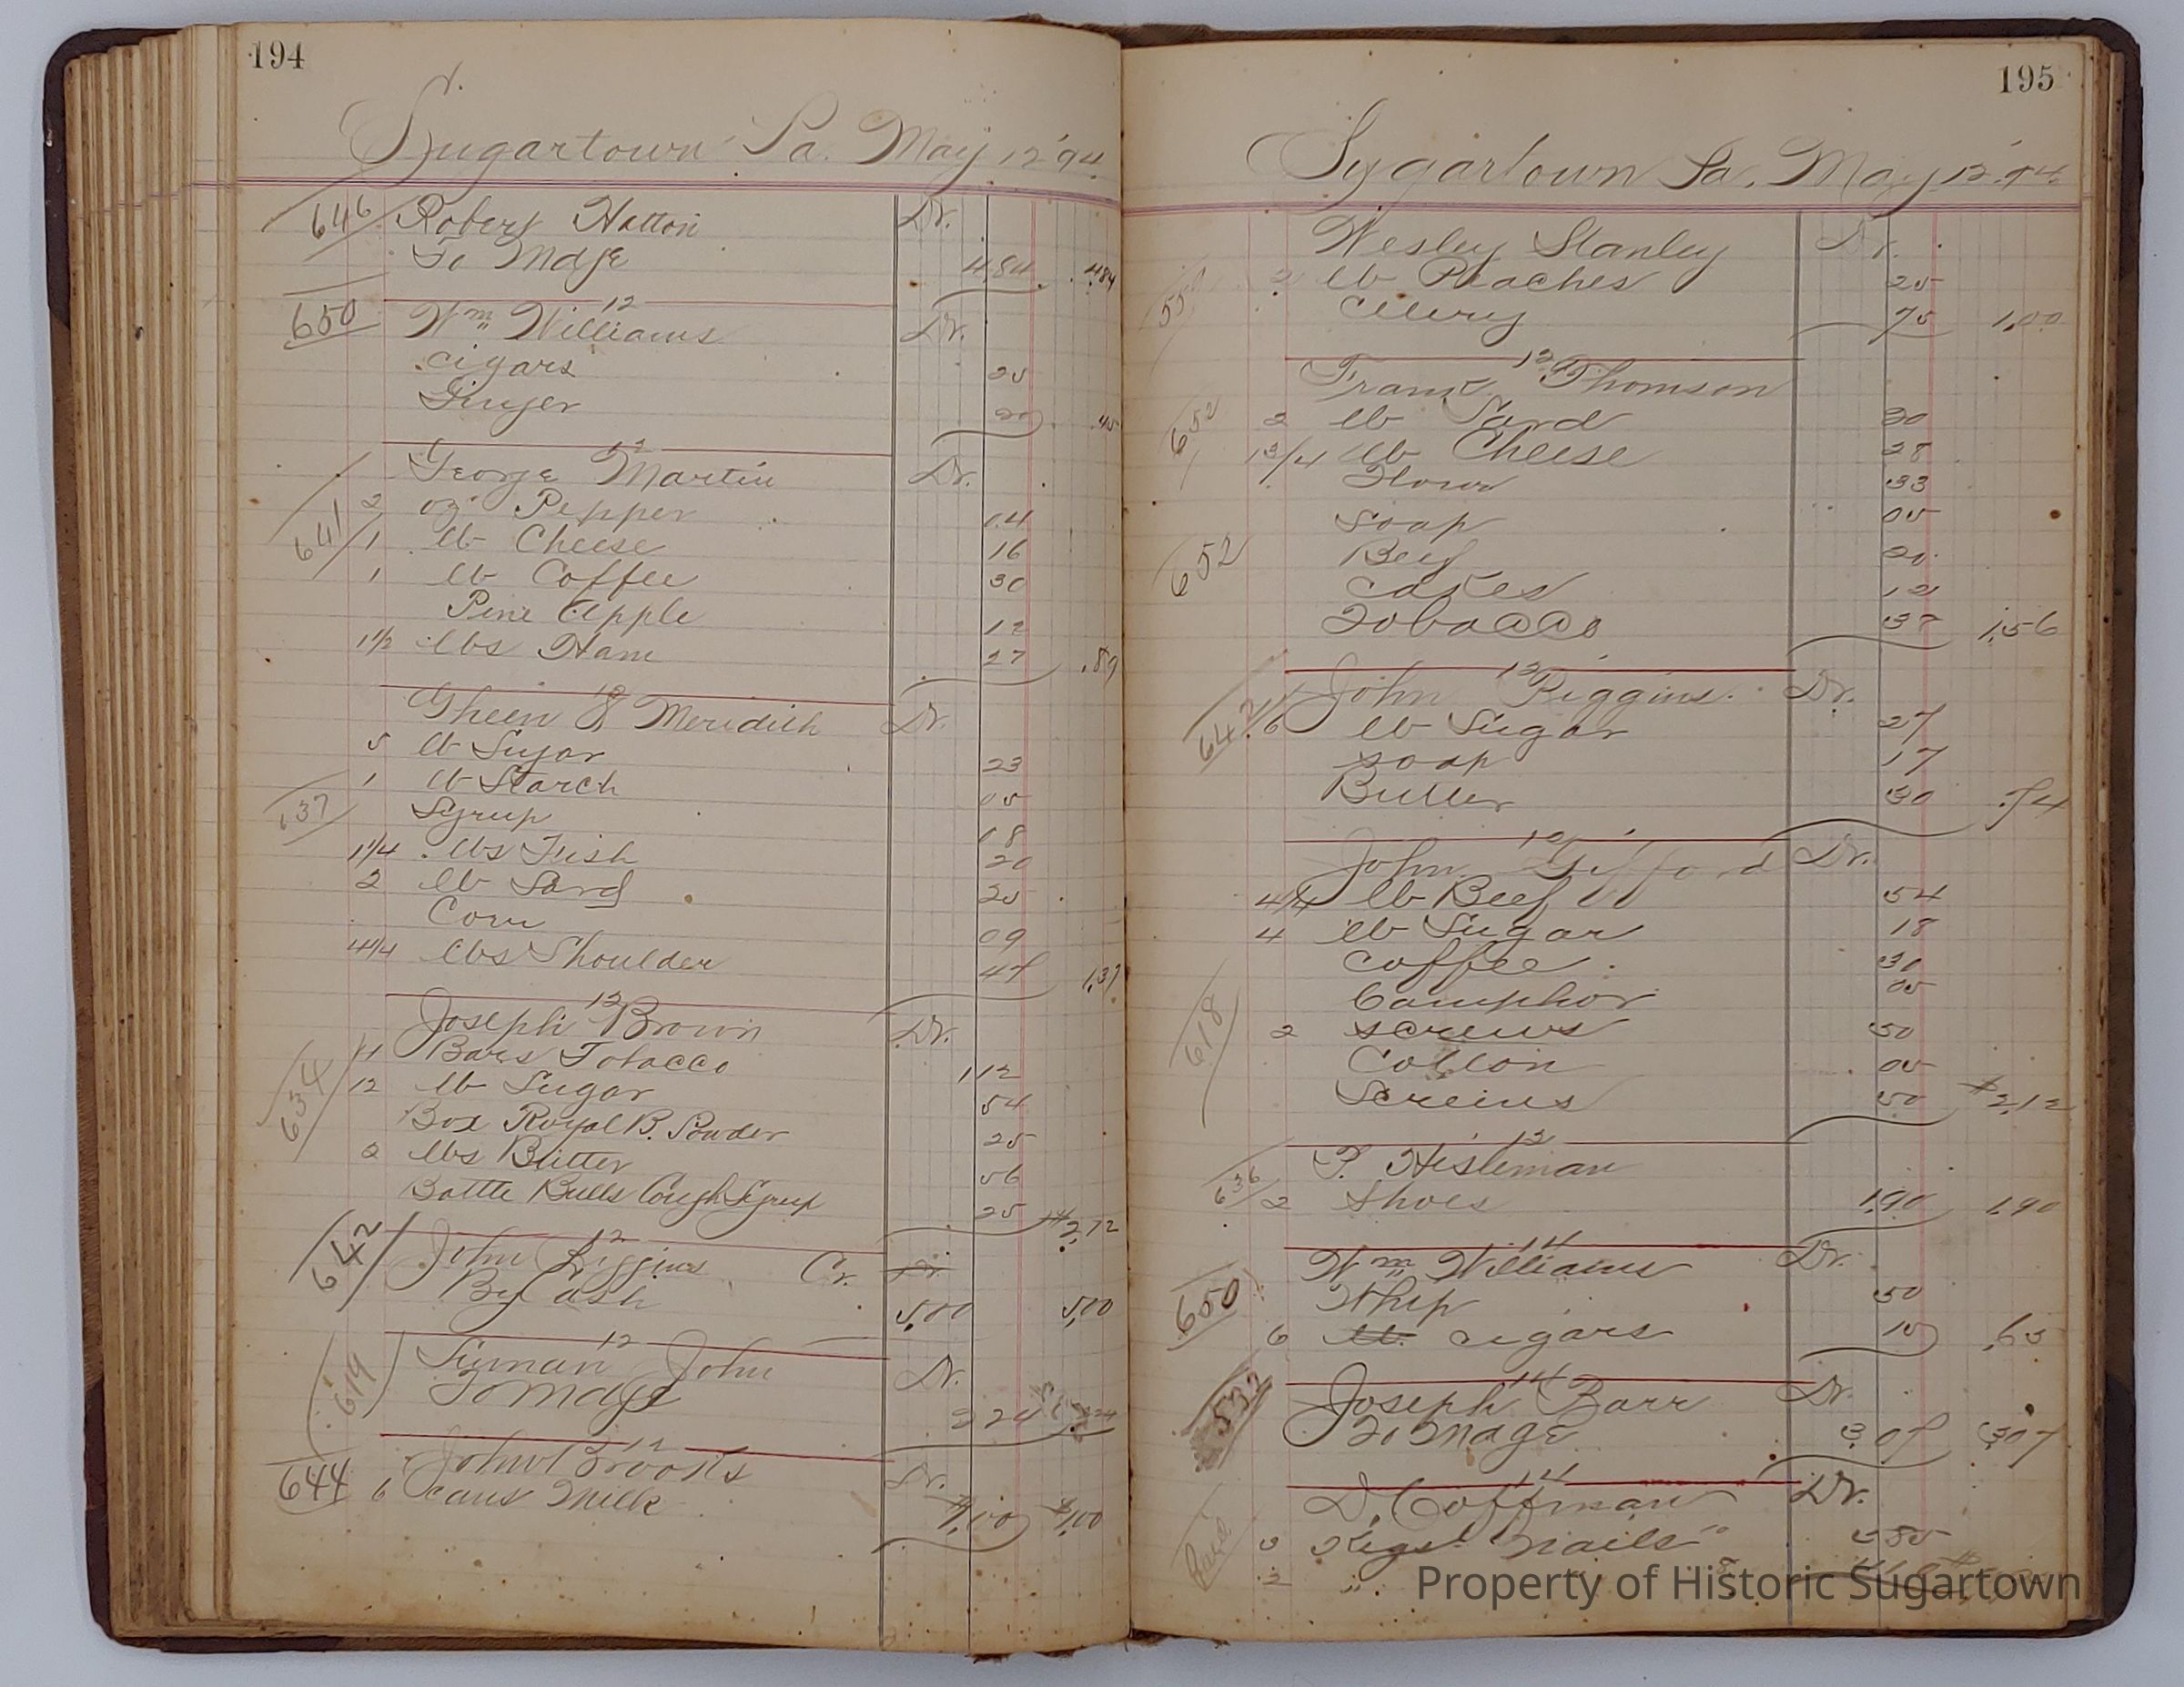 194
Sugartown Pa. May 12 '94
646 Robert Hatton Dr.
To Mdse 4 84 4.84
12
650 Wm Williams Dr.
Cigars 25
Ginger 20 .45
12
George Martin Dr.
641
2 oz Pepper 04
1 lb Cheese 16
1 lb Coffee 30
Pine Apple 12
1 1/2 lbs Ham 27 .89
12
Gheen & Meridith Dr.
5 lb Sugar 23
1 lb Starch 05
637 Syrup 18
1 1/4 lbs Fish 20
2 lb Lard 25
Corn 09
4 1/4 lbs Shoulder 47 1,37
12
Joseph Brown Dr.
634
4 Bars Tobacco 1 12
12 lb Sugar 54
Box Royal B. Powder 25
2 lbs Butter 56
Bottle Bulls Cough Syrup 25 $2,72
12
642 John Riggins Cr. Dr.
By Cash 5,00 5,00
12
619 John Dr.
To Mdse 2 24 2 24
12
644 John Brooks Dr.
6 cans Milk $1,00 $1,00
195
Sugartown Pa. May 12 '94
Wesley Stanley Dr.
2 lb Peaches 25
Celery 75 1,00
12
Frank Thomson
652
2 lb Lard 20
1 3/4 lb Cheese 28
Flour 33
Soap 05
652 Beef 20
Cakes 12
Tobacco 37 1,56
12
John Riggins Dr.
642 6 lb Sugar 27
Soap 17
Butter 30 .74
12
John Gifford Dr.
4 1/4 lb Beef 54
4 lb Sugar 18
Coffee 30
618 Camphor 05
2 screws 50
Cotton 05
Screws 50 $2,12
12
P. Hisleman
636 2 Shoes 1,90 1,90
14
Wm Williams Dr.
650 Whip 50
6 lb. cigars 15 ,65
14
532 Joseph Barr Dr.
To Mdse 3,07 3,07
14
D. Coffman Dr.
Paid 3 Kegs Nails
2 "
Property of Historic Sugartown